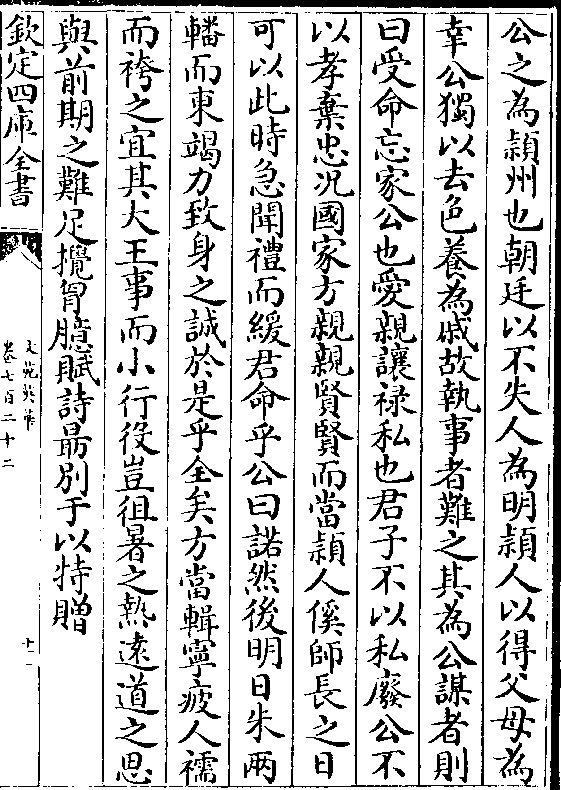 公之為頴州也朝廷以不失人為明頴人以得父母為
幸公獨以去色養為戚故執事者難之其為公謀者則
曰受命忘家公也愛親讓禄私也君子不以私廢公不
以孝棄忠况國家方親親賢賢而當頴人傒師長之日
可以此時急聞禮而緩君命乎公曰諾然後明日朱兩
轓而東竭力致身之誠於是乎全矣方當輯寧疲人襦
而袴之宜其大王事而小行役豈徂暑之熱逺道之思
與前期之難足攪胷臆賦詩最别于以特贈
欽定四庫全書
文苑英華
卷七百二十二